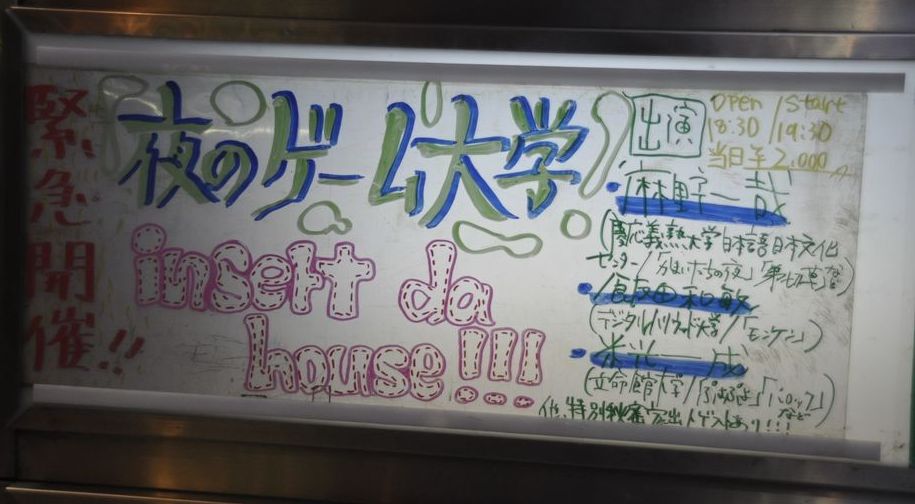 緊急開催!!
夜のゲーム大学
insert da
house!!!
出演
open / start
18:30 / 19:30
当日¥2,000
・麻野一哉
(慶応義塾大学日本語日本文化
センター/「かまいたちの夜」「
・飯田和敏
(デジタルハリウッド大学/「
・米光一成
(立命館大学/「ぷよぷよ」「バロック」
など)
他、特別
ゲストあり!!!